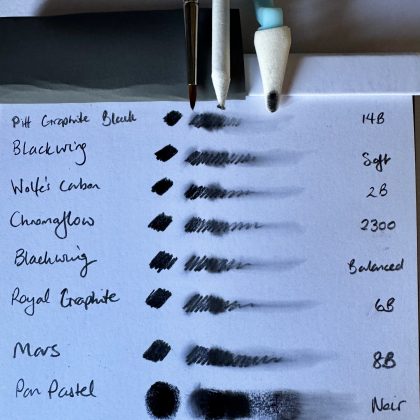 Pitt Graphite Black 14B
Blackwing Soft
Wolfe's Carbon 2B
Chromaflow 2300
Blackwing Balanced
Royal Graphite 6B
Mars 8B
Pan Pastel Noir